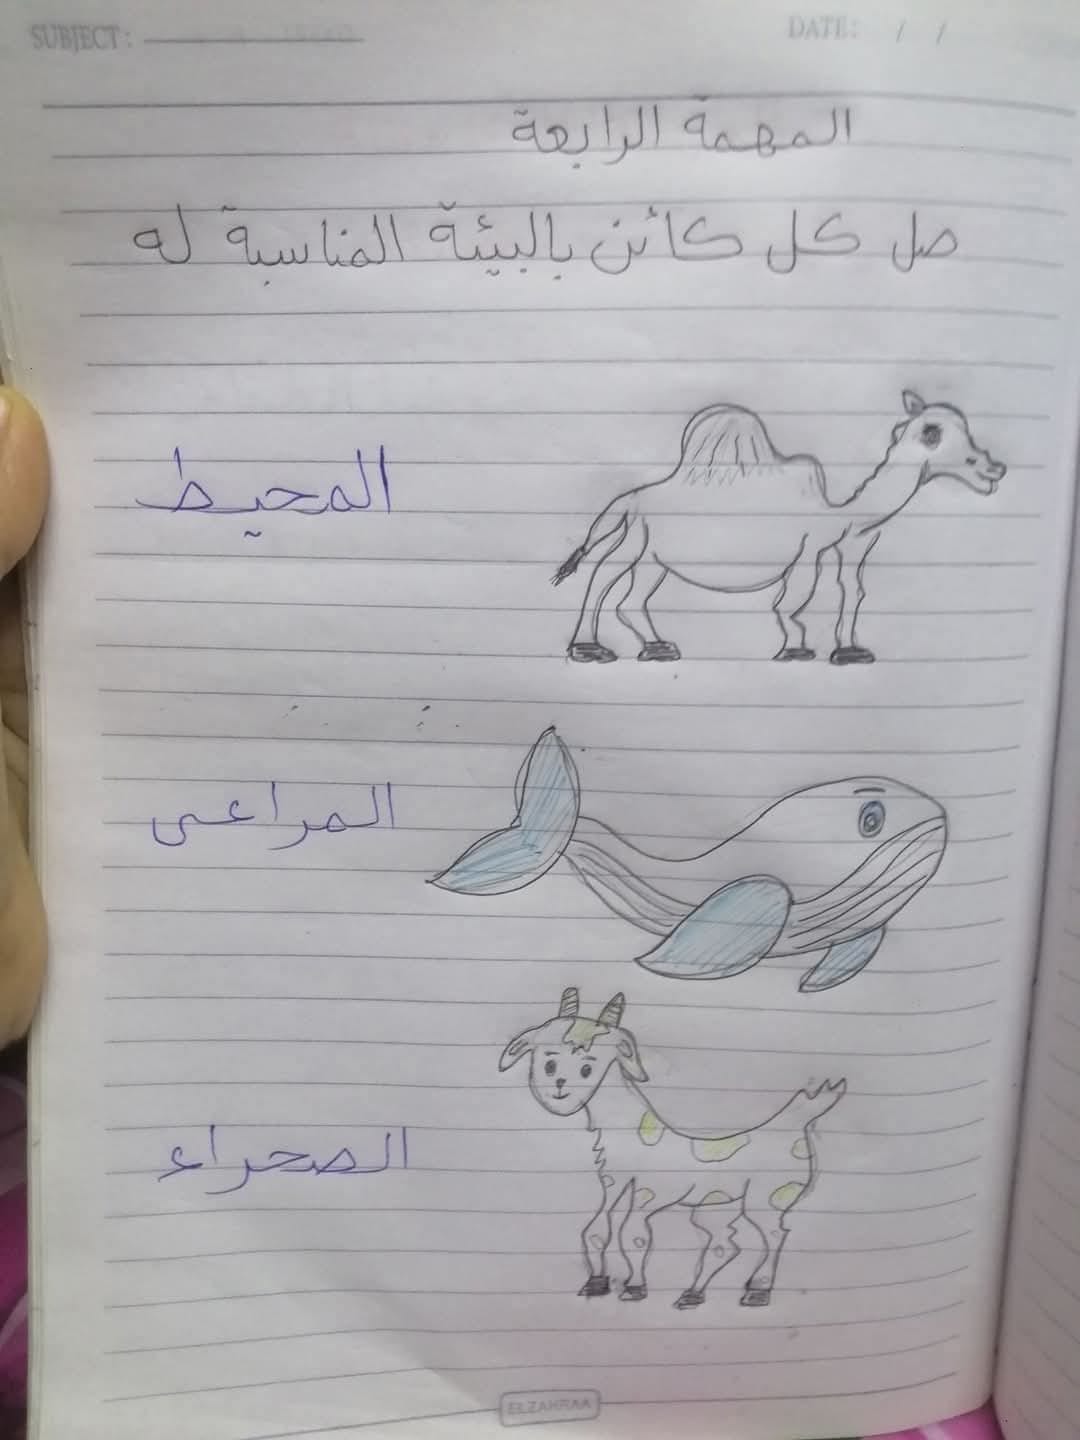 SUBJECT:
DATE: / /
المهمة الرابعة
صل كل كائن بالبيئة المناسبة له
المحيط
المراعى
الصحراء
ELZAHRAA